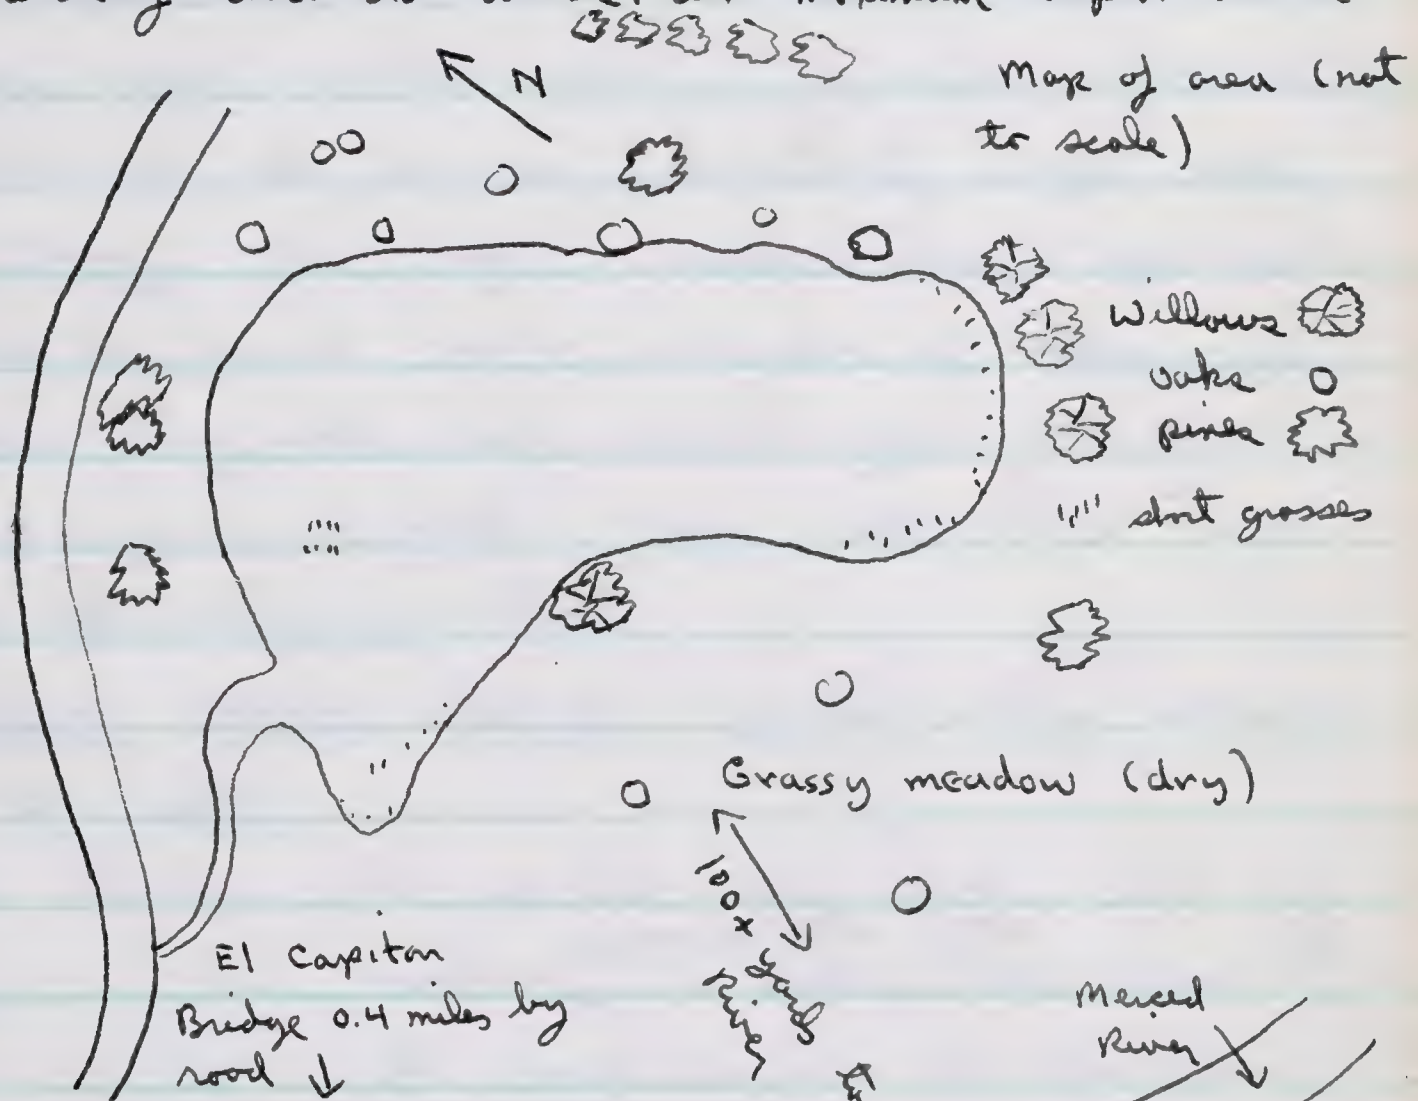 N
Map of area (not
to scale)
Willows
oaks
pines
short grasses
Grassy meadow (dry)
100x
Yards
River
El Capitan
Bridge 0.4 miles by
road
Merced
River